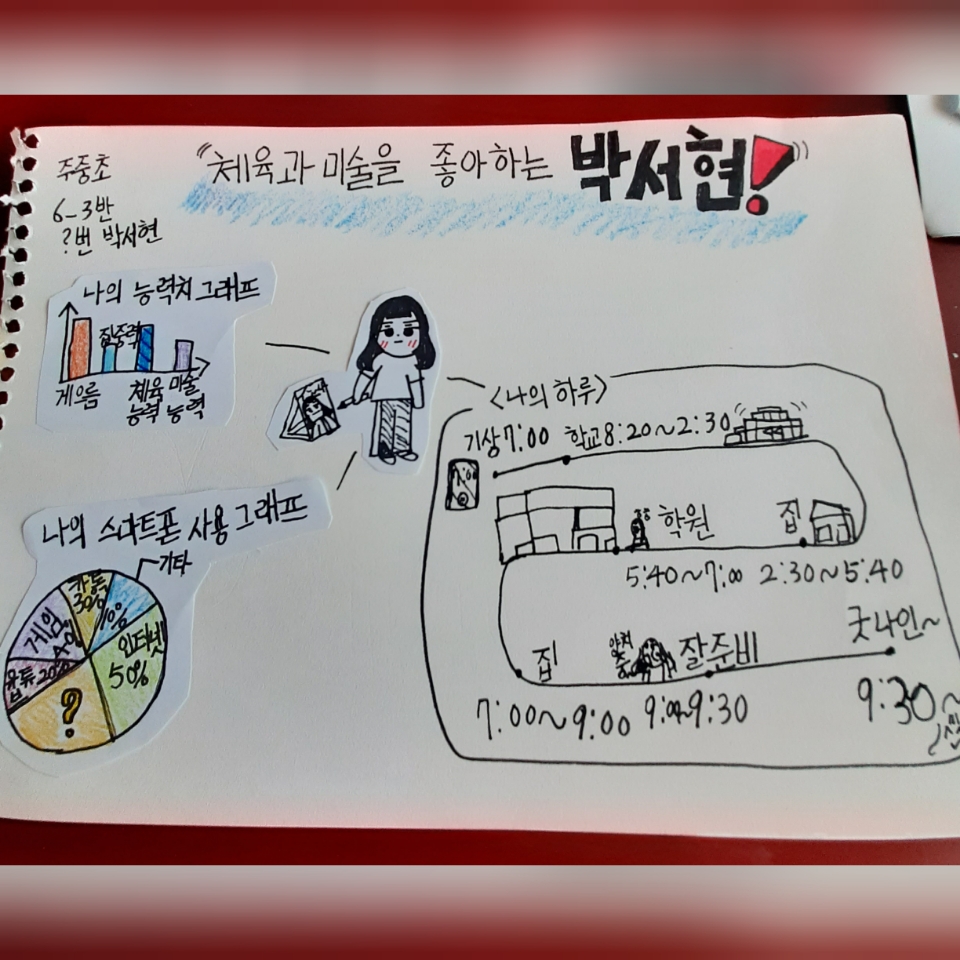 주중초
6-3반
?번 박서현
"체육과 미술을 좋아하는 박서현!"
나의 능력치 그래프
집중력
게으름 체육 미술
능력 능력
나의 스마트폰 사용 그래프
기타
카톡 30%
10%
게임 40%
인터넷 50%
유튭 20%
?
<나의 하루>
기상 7:00 학교 8:20~2:30
7:00
학원 집
5:40~7:00 2:30~5:40
집 양치 잘준비 굿나인~
7:00~9:00 9:00~9:30 9:30~